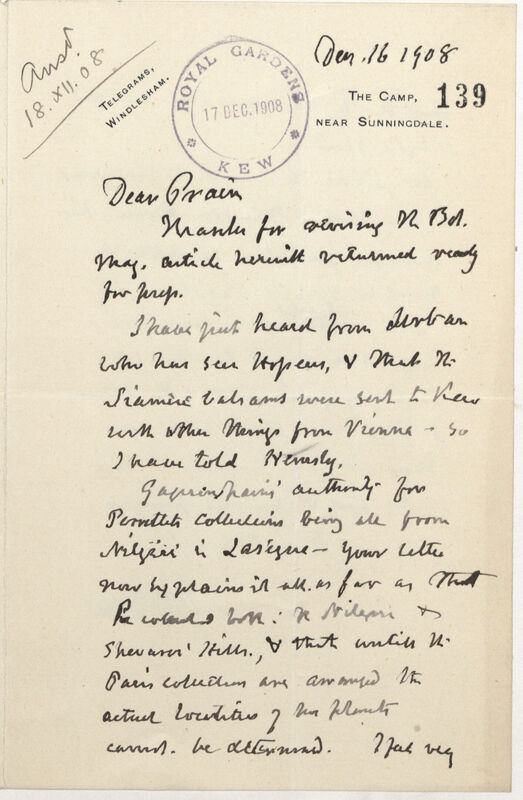 Ansd.
18.XII.08
TELEGRAMS,
WINDLESHAM.
ROYAL GARDENS
17 DEC. 1908
KEW
Dec. 16 1908
THE CAMP,
139
NEAR SUNNINGDALE.
Dear Prain
Thanks for revising the Bot.
Mag. article herewith returned ready
for press.
I have just heard from
who has seen & that the
Siamese balsams were sent to Kew
with other things from Vienna – so
I have told Hemsley.
Gagnepain's authority for
Perrottet's collections being all from
Nilgiri is Lasegue – Your letter
now explains it all. as far as that
he both: the Nilgiri &
Shevaroi Hills., & that until the
Paris collections are arranged the
actual localities of his plants
cannot. be determined. I feel very